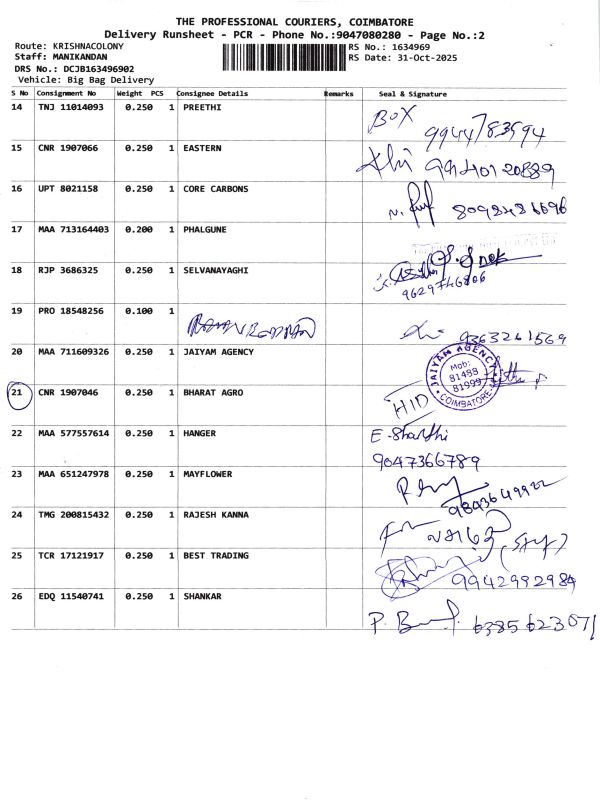 THE PROFESSIONAL COURIERS, COIMBATORE
Delivery Runsheet - PCR - Phone No.:9047080280 - Page No.:2
Route: KRISHNACOLONY
Staff: MANIKANDAN
DRS No.: DCJB163496902
Vehicle: Big Bag Delivery
RS No.: 1634969
RS Date: 31-Oct-2025
S No Consignment No Weight PCS Consignee Details Remarks Seal & Signature
14 TNJ 11014093 0.250 1 PREETHI BOX 9944783594
15 CNR 1907066 0.250 1 EASTERN
16 UPT 8021158 0.250 1 CORE CARBONS
17 MAA 713164403 0.200 1 PHALGUNE
18 RJP 3686325 0.250 1 SELVANAYAGHI 9629746806
19 PRO 18548256 0.100 1 9363261569
20 MAA 711609326 0.250 1 JAIYAM AGENCY
JAIYAM AGENCY
Mob:
81488
81999
COIMBATORE
21 CNR 1907046 0.250 1 BHARAT AGRO H/D
22 MAA 577557614 0.250 1 HANGER E-Sharthi
9047366789
23 MAA 651247978 0.250 1 MAYFLOWER 9843649922
24 TMG 200815432 0.250 1 RAJESH KANNA
25 TCR 17121917 0.250 1 BEST TRADING 9942992984
26 EDQ 11540741 0.250 1 SHANKAR 6385623071